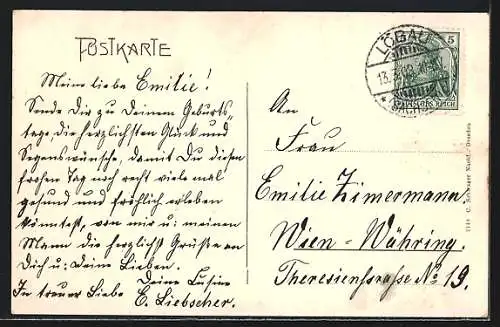 POSTKARTE
Meine liebe Emilie!
Sende Dir zu Deinem Geburts-
tage, die herzlichsten Glück und
Segenswünsche, damit Du diesen
frohen Tag noch recht viele mal
gesund und fröhlich erleben
könntest, von mir u: meinen
Mann die herzlichst Grüsse an
Dich u: Deine Lieben.
Deine Cusine
In treuer Liebe E. Liebscher.
LÖBAU
5
13.3.
DEUTSCHES REICH
An
Frau
Emilie Zimermann
Wien-Währing.
Theresienstrasse No 19.